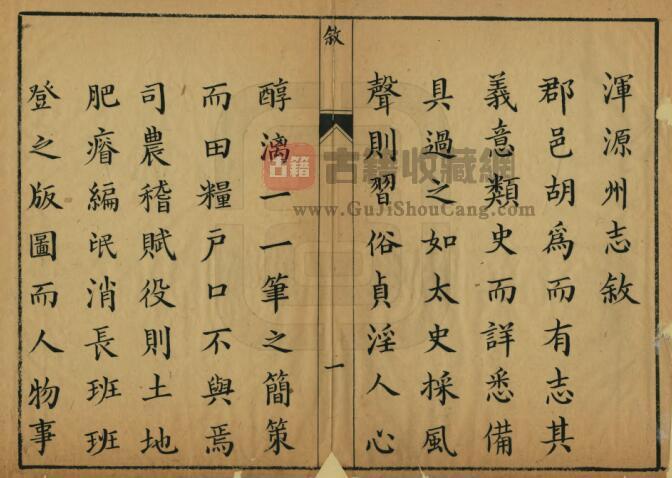 渾源州志敘
郡邑胡為而有志其
義意類史而詳悉備
具過之如太史採風
聲則習俗貞淫人心
敘
一
醇漓一一筆之簡策
而田糧戶口不與焉
司農稽賦役則土地
肥瘠編氓消長班班
登之版圖而人物事
古籍
古籍收藏網
www.GuJiShouCang.com